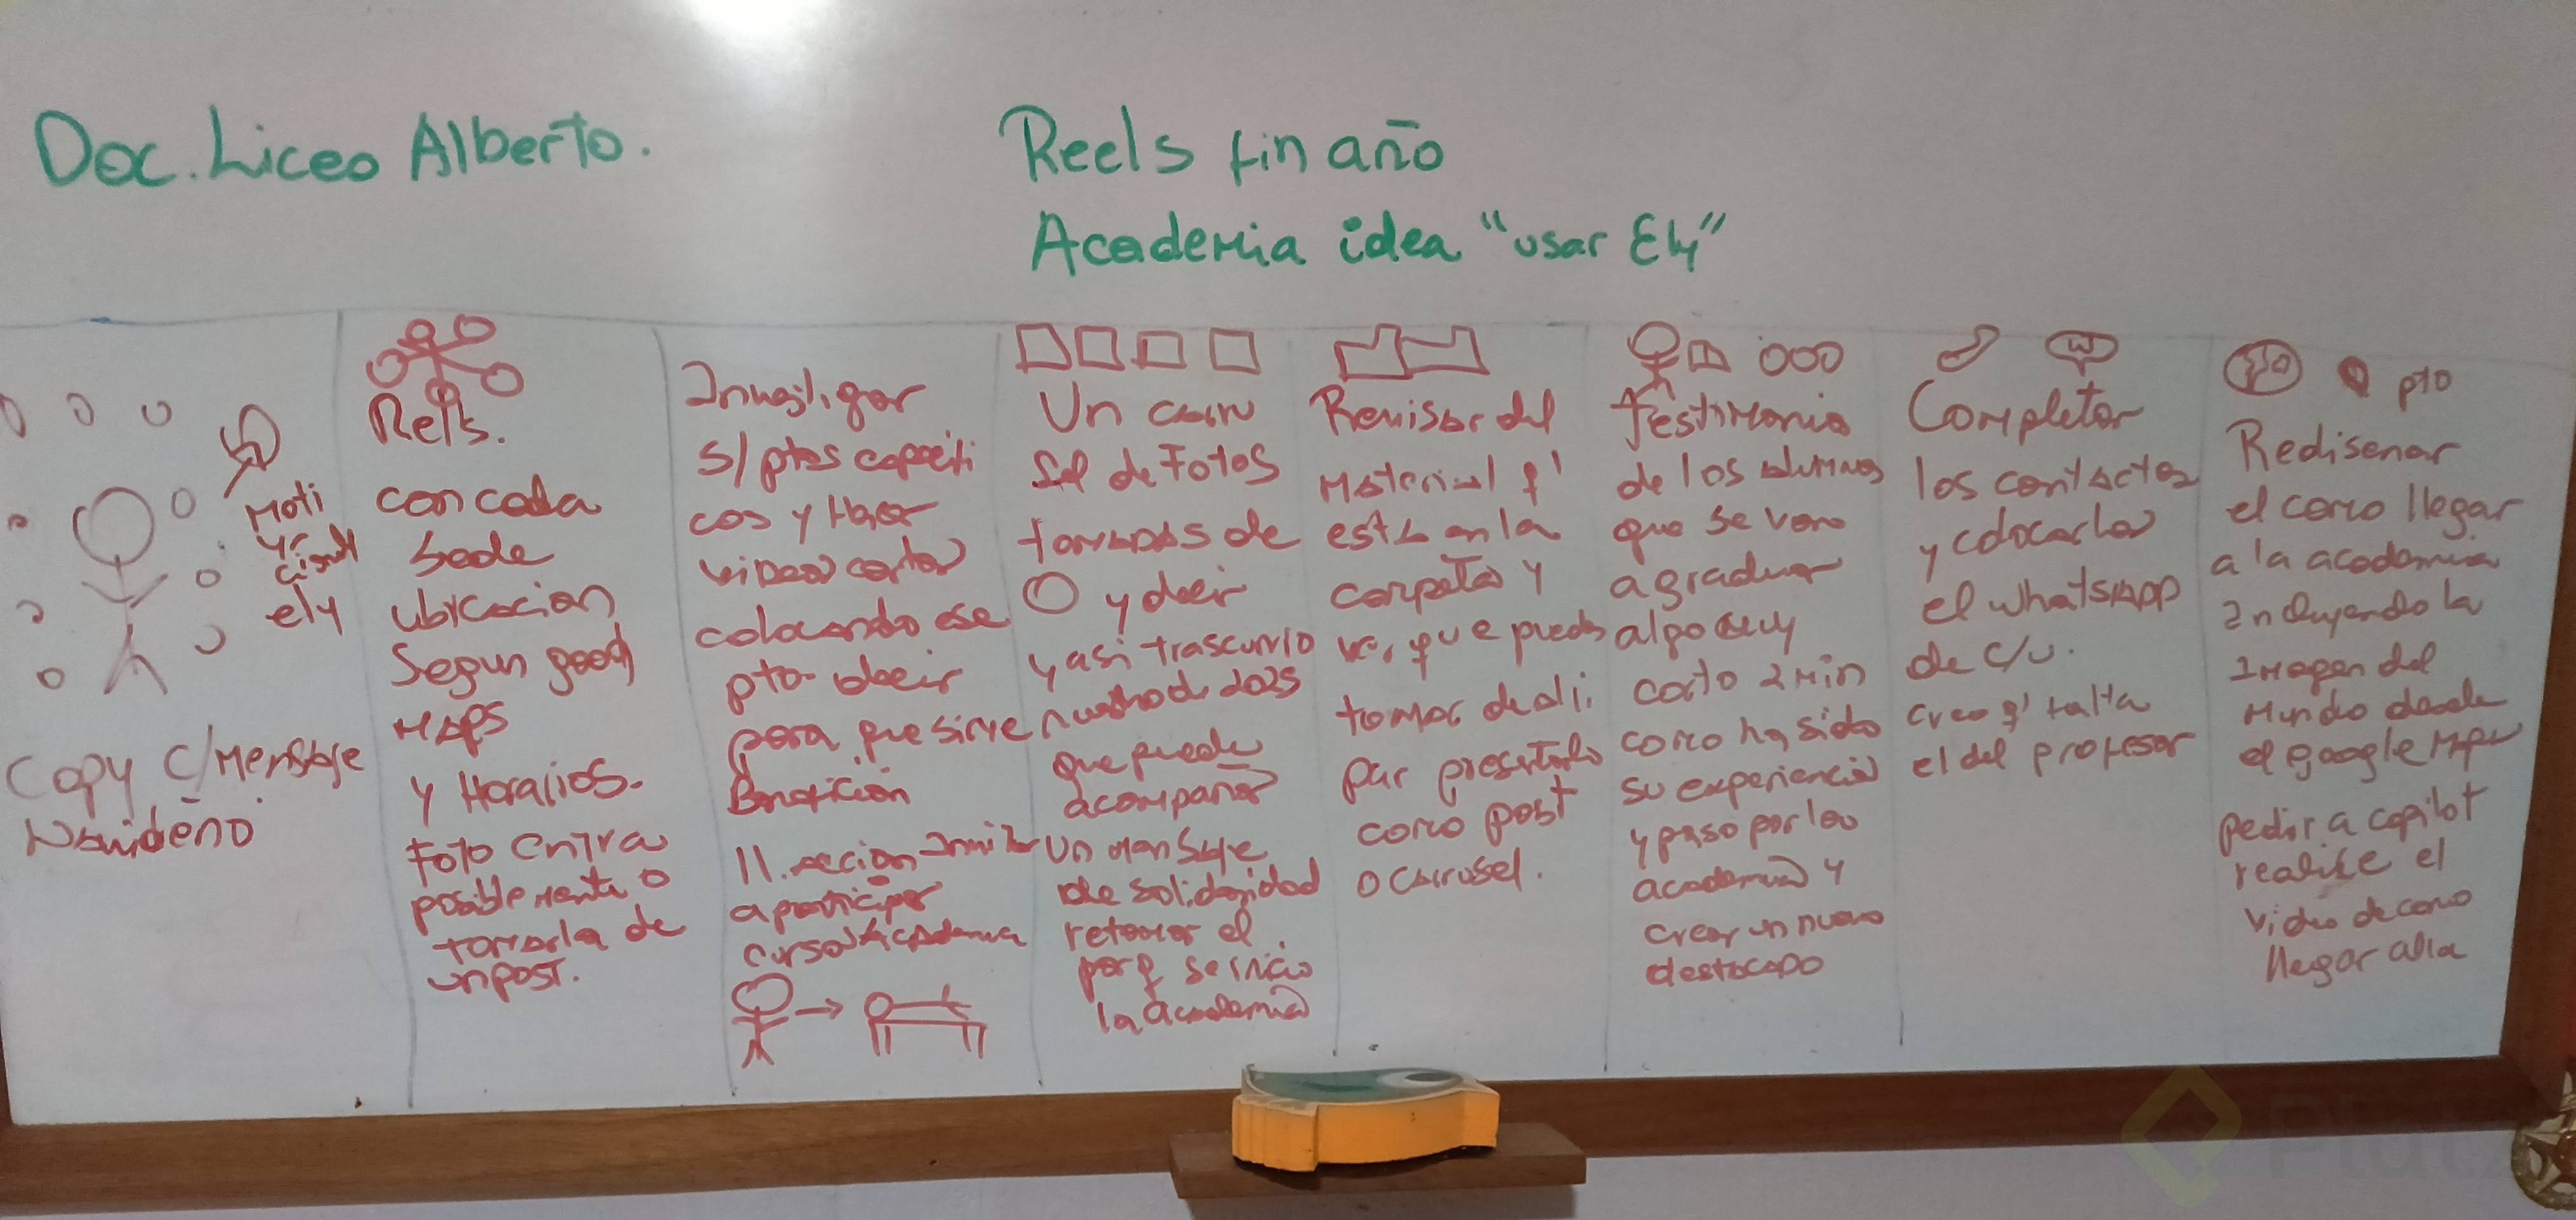 Doc. Liceo Alberto.
Reels fin año
Academia idea "usar Ely"
Moti
ely
Copy c/Mensaje
Navideño
Rels.
con cada
sede
ubicacion
Segun googl
Maps
y Horarios.
Foto entra
posiblemente o
tomarla de
un post.
Investigar
s/ptos especifi
cos y Hacer
videos cortos
colocando ese
pto decir
para que sirve
Beneficion
11. accion Invitar
a participar
curso Academia
Un carru
sel de Fotos
tomadas de
O y decir
y asi trascurrio
nuestro d. 2025
que puede
acompañar
un mensaje
de solidaridad
retomar el
porq se inicio
la academia
Revisar del
Material q'
está en la
carpeta y
ver que puedes
tomar de ali
par presentarlo
como post
o Carrusel.
Testimonio
de los alumnos
que se van
a graduar
algo muy
corto 2 min
como ha sido
su experiencia
y paso por la
academia y
crear un nuevo
destacado
W
Completar
los contactos
y colocarlos
el whatsApp
de c/u.
creo q' falta
el del profesor
pto
Redisenar
el como llegar
a la academia
Incluyendo la
Imagen del
Mundo desde
el google Maps
pedir a copilot
realice el
video de como
llegar alla
Platzi